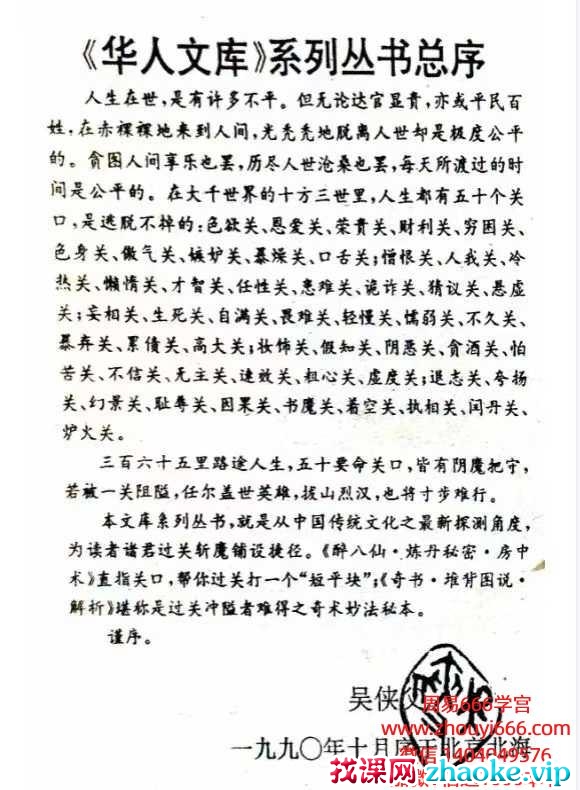 《华人文库》系列丛书总序
人生在世,是有许多不平。但无论达官显贵,亦或平民百
姓,在赤裸裸地来到人间,光秃秃地脱离人世却是极度公平
的。贪图人间享乐也罢,历尽人世沧桑也罢,每天所渡过的时
间是公平的。在大千世界的十方三世里,人生都有五十个关
口,是逃脱不掉的:色欲关、恩爱关、荣贵关、财利关、穷困关、
色身关、傲气关、嫉妒关、暴燥关、口舌关;憎恨关、人我关、冷
热关、懒惰关、才智关、任性关、患难关、诡诈关、猜议关、悬虚
关;妄相关、生死关、自满关、畏难关、轻慢关、懦弱关、不久关、
暴弃关、累债关、高大关;妆饰关、假知关、阴恶关、贪酒关、怕
苦关、不信关、无主关、速效关、粗心关、虚度关;退志关、夸扬
关、幻景关、耻辱关、因果关、书魔关、着空关、执相关、闰丹关、
炉火关。
三百六十五里路途人生,五十要命关口,皆有阴魔把守,
若被一关阻隘,任尔盖世英雄,拔山烈汉,也将寸步难行。
本文库系列丛书,就是从中国传统文化之最新探测角度,
为读者诸君过关斩魔铺设捷径。《醉八仙·炼丹秘密·房中
术》直指关口,帮你过关打一个“短平块”;《奇书·堆背图说·
解析》堪称是过关冲隘者难得之奇术妙法秘本。
谨序。
吴侠
周易666学宫
www.zhouyi666.com
一九九〇年十月
北京北海
找课网zhaoke.vip